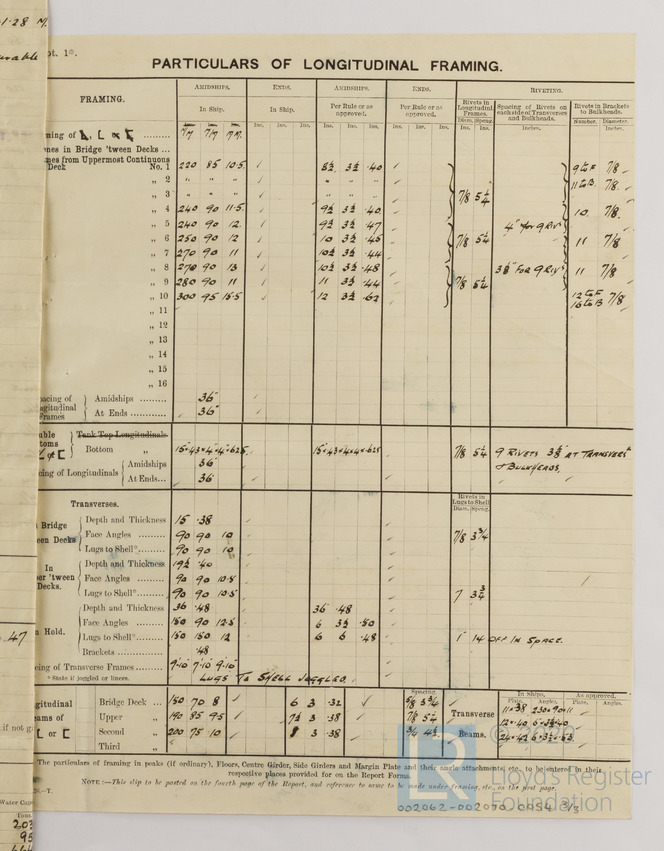 1.28 M.
pt. 1*.
PARTICULARS OF LONGITUDINAL FRAMING.
FRAMING. AMIDSHIPS. ENDS. AMIDSHIPS. ENDS. RIVETING.
In Ship. In Ship. Per Rule or as approved. Per Rule or as approved. Rivets in Longitudinal Frames. Spacing of Rivets on each side of Transverses and Bulkheads. Rivets in Brackets to Bulkheads.
Ins. Ins. Ins. Ins. Ins. Ins. Ins. Ins. Ins. Diam. Speng. Ins. Ins. Inches. Number. Diameter. Inches.
ming of
mes in Bridge 'tween Decks ...
mes from Uppermost Continuous
Deck No. 1 220 85 10.5 8½ 3½ .40 9 to F 7/8
„ 2 „ „ „ „ „ „ 11 to B. 7/8.
„ 3 „ „ „ „ „ „ 7/8 5¼
„ 4 240 90 11.5 9½ 3½ .40 10. 7/8.
„ 5 240 90 12 9½ 3½ .47 4" for 9 Riv
„ 6 250 90 12 10 3½ .45 7/8 5¼ 11 7/8
„ 7 270 90 11 10½ 3½ .44
„ 8 270 90 13 10½ 3½ .48 3⅞" FOR 9 RIVS 11 7/8
„ 9 280 90 11 11 3½ .44 7/8 5¼
„ 10 300 95 15.5 12 3½ .62 12 to F 7/8
16 to B
„ 11
„ 12
„ 13
„ 14
„ 15
„ 16
pacing of Longitudinal Frames Amidships 36"
At Ends 36"
Tank Top Longitudinals
Bottom „ 15×.43×4×4×.625 15×.43×4×4×.625 7/8 5¼ 9 RIVETS AT TRANSVERS
& BULKHEADS.
cing of Longitudinals Amidships 36"
At Ends... 36"
Transverses. Rivets in Lugs to Shell
Diam. Speng.
Bridge een Decks Depth and Thickness 15 .38
Face Angles 90 90 10 7/8 3¾
Lugs to Shell* 90 90 10
In er 'tween Decks. Depth and Thickness 19½ .40
Face Angles 90 90 10.5
Lugs to Shell* 90 90 10.5
n Hold. Depth and Thickness 36 .48 36 .48
Face Angles 150 90 12.5 6 3½ .50
Lugs to Shell* 150 150 12 6 6 .48 1" 14 OFF IN SPACE.
Brackets .48
cing of Transverse Frames 9'.10" 7'.10" 9'.10"
* State if joggled or liners. LUGS TO SHELL JOGGLED.
gitudinal eams of Bridge Deck ... 150 70 8 6 3 .32 Spacing. 5/8 Transverse Beams. In Ships. As approved.
Plate. Angles. Plate. Angles.
Upper „ 190 85 9.5 7½ 3 .38 7/8 5¼
Second „ 200 75 10 8 3 .38 3/4 4½
Third „
11×.38 230×90×11
12×.40
The particulars of framing in peaks (if ordinary), Floors, Centre Girder, Side Girders and Margin Plate and their angle attachments, etc., to be entered in their
respective places provided for on the Report Forms.
NOTE :—This slip to be posted on the fourth page of the Report, and reference to same to be made under framing, etc., on the first page.
.47
if not g
Water Capa
Tons.
203
95
© 2020
Lloyd's Register
Foundation
002062-002070-0054 3/3